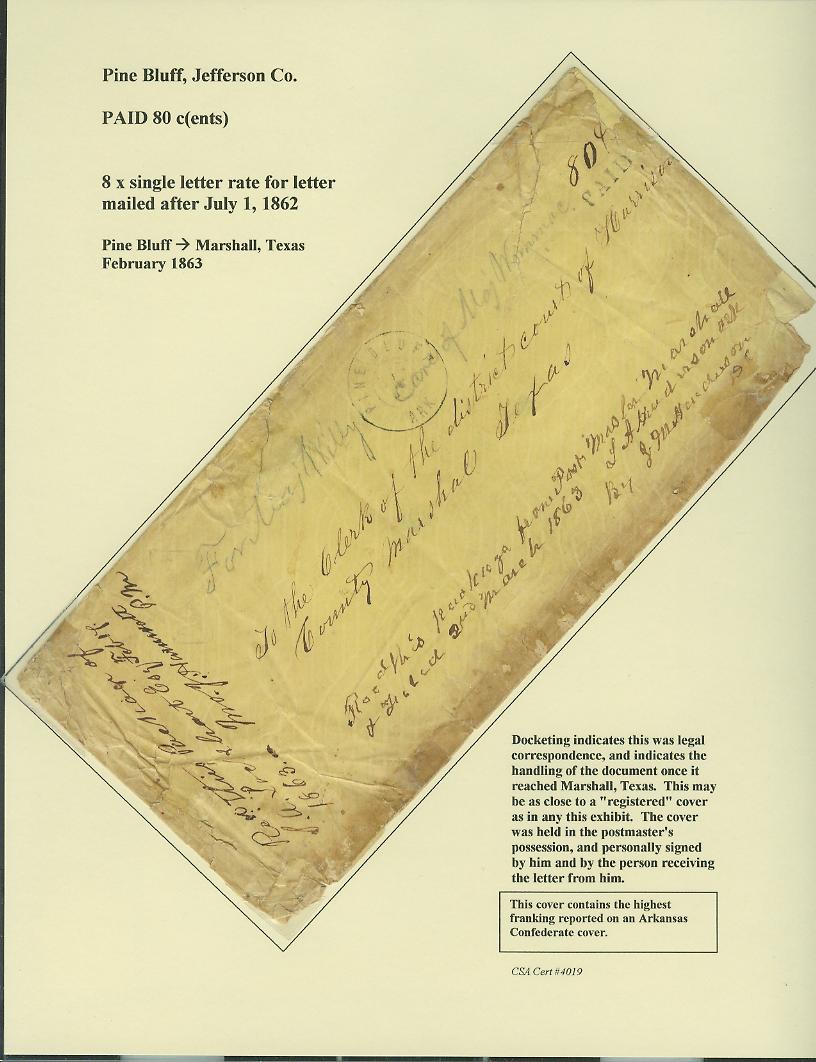 Pine Bluff, Jefferson Co.
PAID 80 c(ents)
8 x single letter rate for letter
mailed after July 1, 1862
Pine Bluff → Marshall, Texas
February 1863
80¢
PAID
PINE BLUFF
ARK
Care of Maj
For Maj
To the Clerk of the district court of Harrison
County Marshal Texas
Recd this package from Post Master Marshall
& 2nd March 1863
By J M Henderson
Recd this
1863
P.M
Docketing indicates this was legal
correspondence, and indicates the
handling of the document once it
reached Marshall, Texas.  This may
be as close to a "registered" cover
as in any this exhibit.  The cover
was held in the postmaster's
possession, and personally signed
by him and by the person receiving
the letter from him.
This cover contains the highest
franking reported on an Arkansas
Confederate cover.
CSA Cert #4019